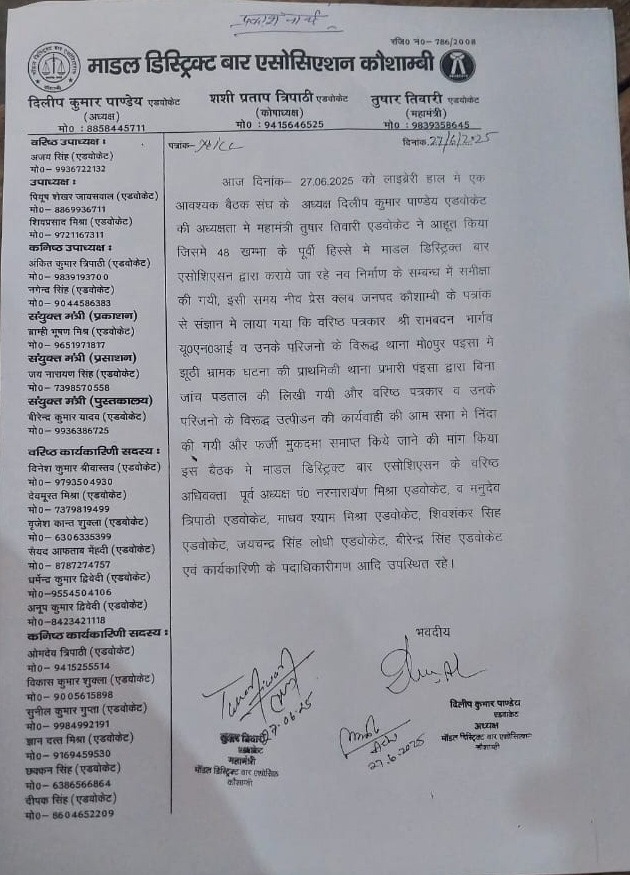 प्रकाशनार्थ
रजि0 नं0- 786/2008
माडल डिस्ट्रिक्ट बार एसोसिएशन कौशाम्बी
दिलीप कुमार पाण्डेय एडवोकेट
(अध्यक्ष)
मो0 : 8858445711
शशी प्रताप त्रिपाठी एडवोकेट
(कोपाध्यक्ष)
मो0 : 9415646525
तुषार तिवारी एडवोकेट
(महामंत्री)
मो0 : 9839358645
पत्रांक-
दिनांक 27/6/2025
वरिष्ठ उपाध्यक्ष :
अजय सिंह (एडवोकेट)
मो0- 9936722132
उपाध्यक्ष :
पियूष शेखर जायसवाल (एडवोकेट)
मो0- 8869936711
शिवप्रसाद मिश्रा (एडवोकेट)
मो0- 9721167311
कनिष्ठ उपाध्यक्ष :
अंकित कुमार त्रिपाठी (एडवोकेट)
मो0- 9839193700
नगेन्द सिंह (एडवोकेट)
मो0- 9044586383
संयुक्त मंत्री (प्रकाशन)
ब्राम्ही भूषण मिश्र (एडवोकेट)
मो0- 9651971817
संयुक्त मंत्री (प्रसाशन)
जय नारायण सिंह (एडवोकेट)
मो0- 7398570558
संयुक्त मंत्री (पुस्तकालय)
बीरेन्द कुमार यादव (एडवोकेट)
मो0- 9936386725
वरिष्ठ कार्यकारिणी सदस्य :
दिनेश कुमार श्रीवास्तव (एडवोकेट)
मो0- 9793504930
देवमूरत मिश्रा (एडवोकेट)
मो0- 7379819499
वृजेश कान्त शुक्ला (एडवोकेट)
मो0- 6306335399
सैयद आफताब मेंहदी (एडवोकेट)
मो0- 8787274757
धर्मेन्द कुमार द्विवेदी (एडवोकेट)
मो0-9554504106
अनूप कुमार द्विवेदी (एडवोकेट)
मो0-8423421118
कनिष्ठ कार्यकारिणी सदस्य :
ओमदेव त्रिपाठी (एडवोकेट)
मो0- 9415255514
विकास कुमार शुक्ला (एडवोकेट)
मो0- 9005615898
सुनील कुमार गुप्ता (एडवोकेट)
मो0- 9984992191
ज्ञान दत्त मिश्रा (एडवोकेट)
मो0- 9169459530
छक्कन सिंह (एडवोकेट)
मो0- 6386566864
दीपक सिंह (एडवोकेट)
मो0- 8604652209
आज दिनांक- 27.06.2025 को लाइब्रेरी हाल मे एक
आवश्यक बैठक संघ के अध्यक्ष दिलीप कुमार पाण्डेय एडवोकेट
की अध्यक्षता मे महामंत्री तुषार तिवारी एडवोकेट ने आहूत किया
जिसमे 48 खम्भा के पूर्वी हिस्से मे माडल डिस्ट्रिक्त बार
एसोशिएसन द्वारा कराये जा रहे नव निर्माण के सम्बन्ध मे समीक्षा
की गयी, इसी समय नीव प्रेस क्लब जनपद कौशाम्बी के पत्रांक
से संज्ञान मे लाया गया कि वरिष्ठ पत्रकार श्री रामबदन भार्गव
यू0एन0आई व उनके परिजनो के विरूद्ध थाना मो0पुर पइसा मे
झूठी भ्रामक घटना की प्राथमिकी थाना प्रभारी पंइसा द्वारा बिना
जांच पडताल की लिखी गयी और वरिष्ठ पत्रकार व उनके
परिजनो के विरूद्ध उत्पीडन की कार्यवाही की आम सभा मे निंदा
की गयी और फर्जी मुकदमा समाप्त किये जाने की मांग किया
इस बैठक मे माडल डिस्ट्रिक्ट बार एसोशिएसन के वरिष्ठ
अधिवक्ता पूर्व अध्यक्ष पं0 नरनारायंण मिश्रा एडवोकेट, व मनुदेव
त्रिपाठी एडवोकेट, माधव श्याम मिश्रा एडवोकेट, शिवशंकर सिह
एडवोकेट, जयचन्द्र सिंह लोधी एडवोकेट, बीरेन्द्र सिंह एडवोकेट
एवं कार्यकारिणी के पदाधिकारीगण आदि उपस्थित रहे।
भवदीय
Tushar Tiwari
27.06.25
तुषार तिवारी
एडवोकेट
महामंत्री
मॉडल डिस्ट्रिक्ट बार एसोसि
कौशाम्बी
27.6.2025
दिलीप कुमार पाण्डेय
एडवोकेट
अध्यक्ष
मॉडल डिस्ट्रिक्ट बार एसोसिएशन
कौशाम्बी